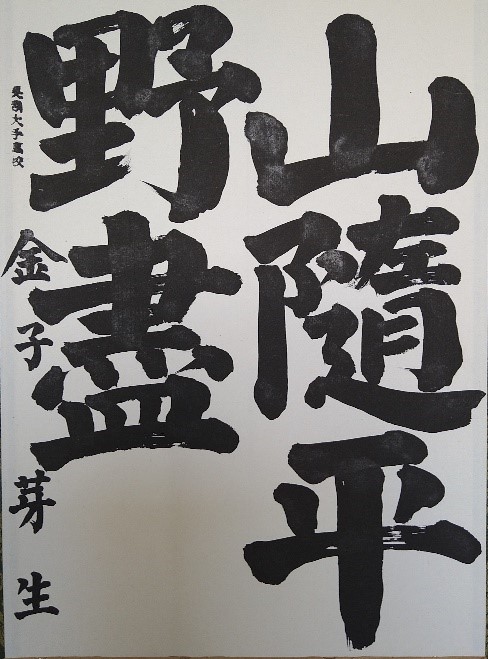 山隨平
野盡
長岡大手高校
金子芽生